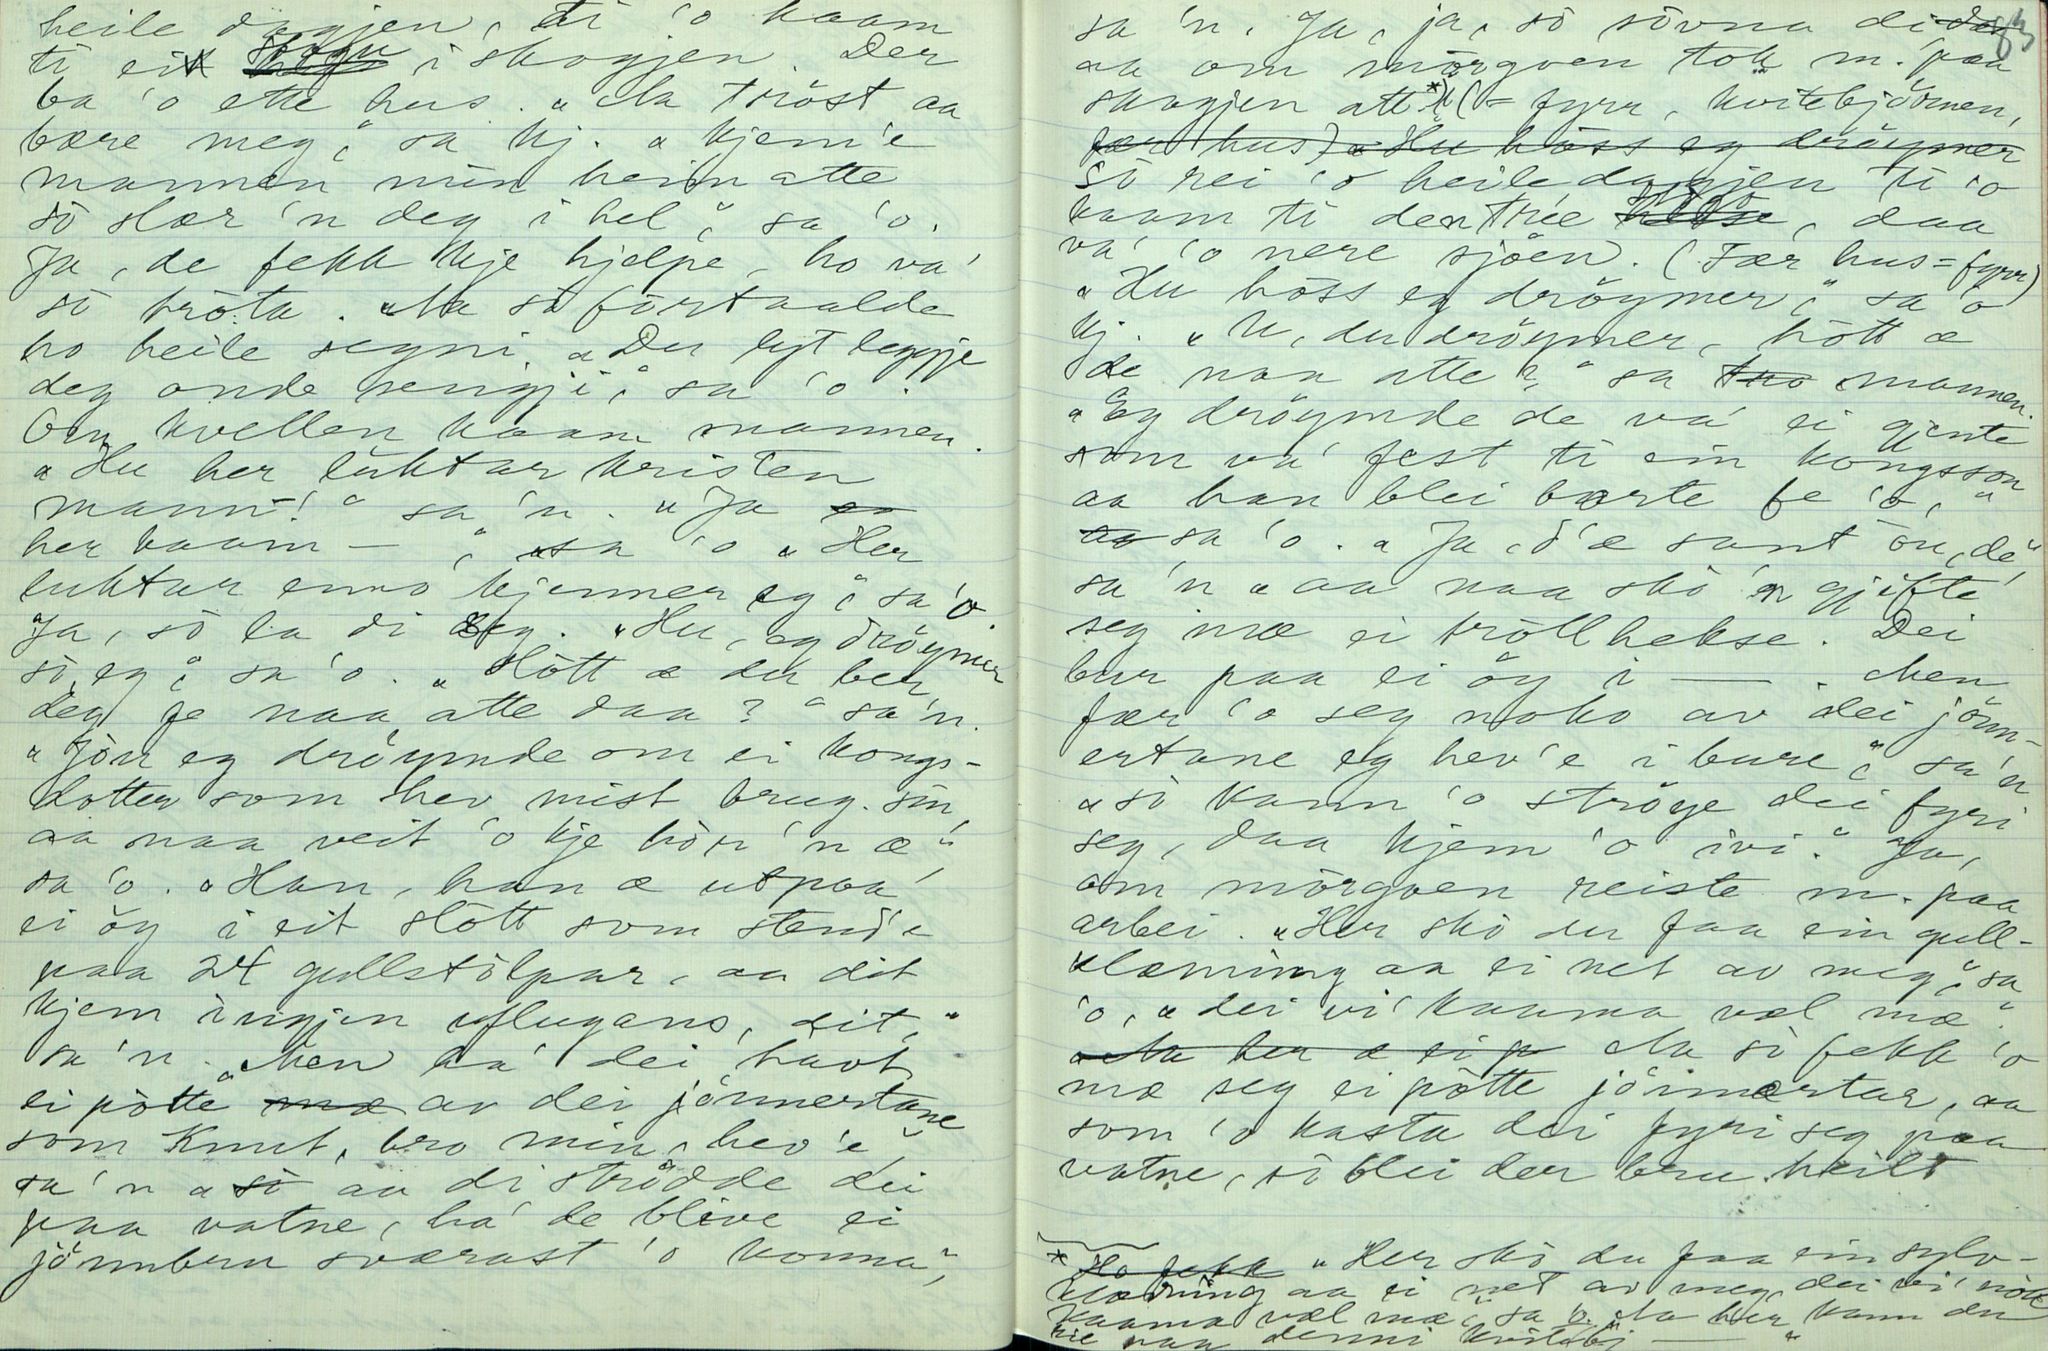 heile dagjen, ti 'o kaam
ti ei stogu i skogjen. Der
ba 'o ette hus. "Aa tröst aa
bære meg," sa kj. "Kjem'e
mannen min heim atte
so slær 'n deg i hel," sa 'o.
Ja, de fekk kje hjelpe, ho va'
so tröta. "Aa so förtaalde
ho heile segni. "Du lyt leggje
deg onde sengji," sa 'o.
Om kvellen kaam mannen.
"Hu her luktar kristen
mann!" sa 'n. "Ja
her kaam — ," sa 'o "Her
luktar enno kjenner eg," sa 'o.
Ja, so la di seg. "Hu, eg dröymer
so, eg," sa 'o. "Hött æ du ber
deg fe naa atte daa?" sa 'n.
"Jöu eg dröymde om ei kongs-
dotter som hev mist brug. sin
aa naa veit 'o kje hörr 'n æ",
sa 'o. "Han, han æ utpaa
ei öy i eit slott som stend'e
paa 24 gullstölpar, aa dit
kjem ingjen uflugans, dit,"
sa 'n. "Men ha' dei havt
ei pötte mæ av dei jönnertane
som Knut, bro min, hev'e,"
sa 'n "so aa di strödde dei
paa vatne, ha' de blive ei
jönnbru sværast 'o konna",
sa 'n. Ja, ja, so sovna di da
aa om morgoen tok m. paa
skogjen att * (= fyrr, kvitebjörnen,
fær hus) "Hu höss eg dröymer
So rei 'o heile dagjen ti 'o
kaam ti den trie stogo, daa
va' 'o nere sjöen. (Fær hus = fyrr)
"Hu höss eg dröymer," sa 'o
kj. "U, du dröymer, hött æ
de naa atte?" sa mannen.
"Eg dröymde de va' ei gjente
som va' fest ti ein kongsson
aa han blei borte fe 'o,"
sa 'o. "Ja, d'æ sant ou, de",
sa 'n "aa naa sko 'n gjifte
seg mæ ei tröllhekse. Dei
bur paa ei öy i — . Men
fær 'o seg noko av dei jönn-
ertane eg hev'e i bure," sa 'n
"so kann 'o ströye dei fyri
seg, daa kjem 'o ivi." Ja,
om morgoen reiste m. paa
arbei. "Her sko du faa ein gull-
klæning aa ei net av meg," sa
'o, "dei vi' kaama væl mæ".
"Aa her æ ei p Aa so fekk 'o
mæ seg ei pötte jönnertar, aa
som 'o kasta dei fyri seg paa
vatne, so blei der bru heilt
* Ho fekk "Her sko du faa ein sylv-
klædning aa ei net av meg, dei vi' nok
kaama væl mæ," sa 'o. "Aa her kann du
rie paa denni kvitebj — "